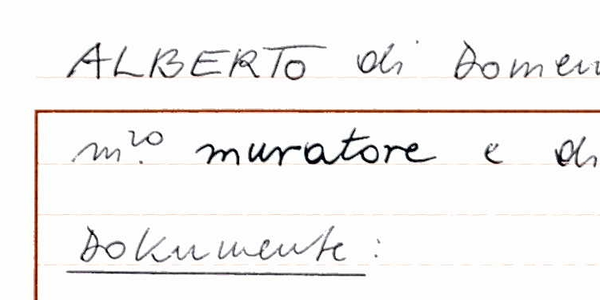 ALBERTO di Domen
m.ro muratore e di
Dokumente: